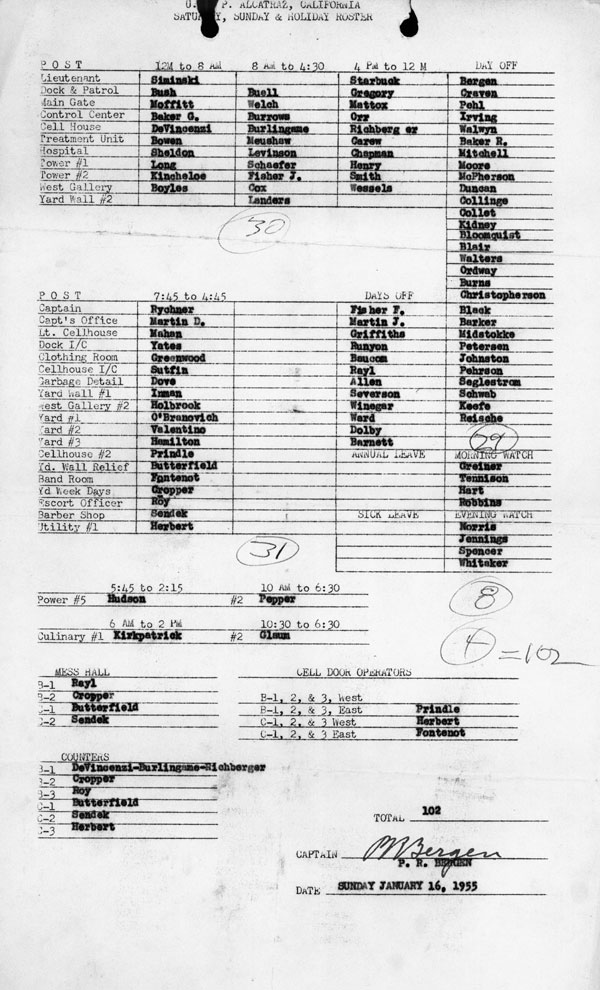 P. ALCATRAZ, CALIFORNIA
SATURDAY, SUNDAY & HOLIDAY ROSTER
POST 12M to 8 AM 8 AM to 4:30 4 PM to 12 M DAY OFF
Lieutenant Siminski Starbuck Bergen
Dock & Patrol Bush Buell Gregory Craven
Main Gate Moffitt Welch Mattox Pehl
Control Center Baker G. Burrows Orr Irving
Cell House DeVincenzi Burlingame Richberg er Walwyn
Treatment Unit Bowen Meushaw Carew Baker R.
Hospital Sheldon Levinson Chapman Mitchell
Tower #1 Long Schaefer Henry Moore
Tower #2 Kincheloe Fisher J. Smith McPherson
West Gallery Boyles Cox Wessels Duncan
Yard Wall #2 Landers Collinge
Collet
Kidney
Bloomquist
Blair
Walters
Ordway
Burns
30
POST 7:45 to 4:45 DAYS OFF Christopherson
Captain Rychner Fisher F. Black
Capt's Office Martin D. Martin J. Barker
Lt. Cellhouse Mahan Griffiths Midstokke
Dock I/C Yates Runyon Petersen
Clothing Room Greenwood Baucom Johnston
Cellhouse I/C Sutfin Rayl Pehrson
Garbage Detail Dove Allen Seglestrom
Yard Wall #1 Inman Severson Schwab
West Gallery #2 Holbrook Winegar Keefe
Yard #1 O'Branovich Ward Reische
Yard #2 Valentino Dolby
Yard #3 Hamilton Barnett 29
Cellhouse #2 Prindle ANNUAL LEAVE MORNING WATCH
Yd. Wall Relief Butterfield Greiner
Band Room Fontenot Tennison
Yd Week Days Cropper Hart
Escort Officer Roy Robbins
Barber Shop Sendek SICK LEAVE EVENING WATCH
Utility #1 Herbert Norris
Jennings
Spencer
Whitaker
31
5:45 to 2:15 10 AM to 6:30
Power #5 Hudson #2 Pepper 8
6 AM to 2 PM 10:30 to 6:30
Culinary #1 Kirkpatrick #2 Glaum 4 =102
MESS HALL CELL DOOR OPERATORS
B-1 Rayl
B-2 Cropper B-1, 2, & 3, West
C-1 Butterfield B-1, 2, & 3, East Prindle
C-2 Sendek C-1, 2, & 3 West Herbert
C-1, 2, & 3 East Fontenot
COUNTERS
B-1 DeVincenzi-Burlingame-Richberger
B-2 Cropper
B-3 Roy
C-1 Butterfield
C-2 Sendek
C-3 Herbert
TOTAL 102
CAPTAIN P R Bergen
P. R. BERGEN
DATE SUNDAY JANUARY 16, 1955